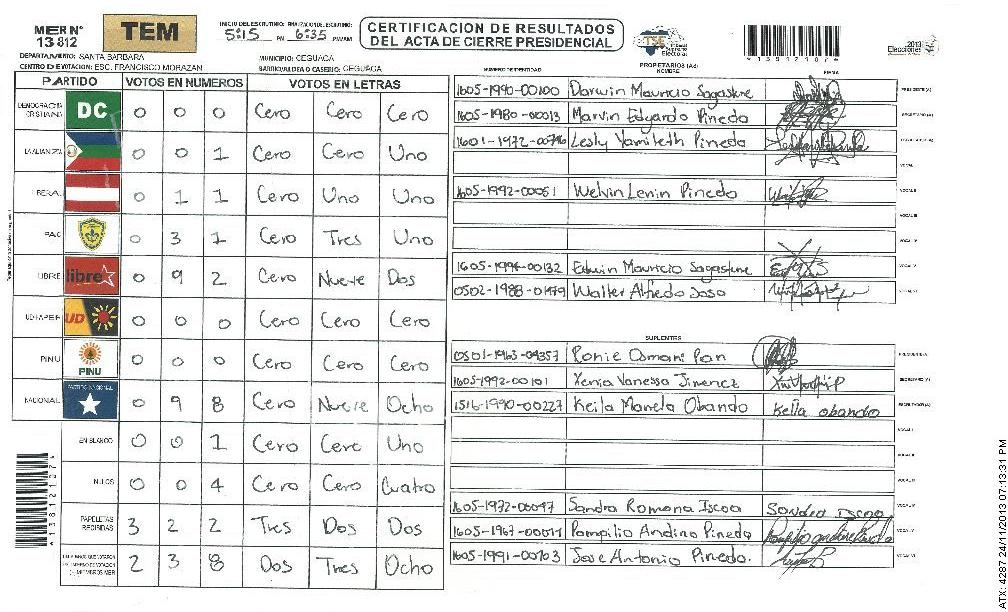 MER Nº
13812
TEM
INICIO DEL ESCRUTINIO: FINALIZACION DEL ESCRUTINIO:
5:15 PM 6:35 PM/AM
CERTIFICACION DE RESULTADOS
DEL ACTA DE CIERRE PRESIDENCIAL
TSE
Tribunal
Supremo
Electoral
Elecciones 2013
*13812107*
DEPARTAMENTO: SANTA BARBARA
MUNICIPIO: CEGUACA
CENTRO DE VOTACION: ESC. FRANCISCO MORAZAN
BARRIO/ALDEA O CASERIO: CEGUACA
PARTIDO VOTOS EN NUMEROS VOTOS EN LETRAS
DEMOCRACIA CRISTIANA DC 0 0 0 Cero Cero Cero
LA ALIANZA 0 0 1 Cero Cero Uno
LIBERAL 0 1 1 Cero Uno Uno
PAC 0 3 1 Cero Tres Uno
LIBRE libre 0 9 2 Cero Nueve Dos
UD FAPER UD 0 0 0 Cero Cero Cero
PINU PINU 0 0 0 Cero Cero Cero
NACIONAL PARTIDO NACIONAL 0 9 8 Cero Nueve Ocho
EN BLANCO 0 0 1 Cero Cero Uno
NULOS 0 0 4 Cero Cero Cuatro
PAPELETAS RECIBIDAS 3 2 2 Tres Dos Dos
2 3 8 Dos Tres Ocho
*13812107*
NUMERO IDENTIDAD PROPIETARIOS (AS) NOMBRE FIRMA
1605-1990-00100 Darwin Mauricio Sagastume PRESIDENTE(A)
1605-1980-00013 Marvin Edgardo Pineda SECRETARIO(A)
1601-1972-00796 Lesly Yamileth Pineda ESCRUTADOR(A)
VOCAL I
1605-1992-00051 Welvin Lenin Pineda VOCAL II
VOCAL III
VOCAL IV
Edwin Mauricio Sagastume VOCAL V
0502-1988-01979 Walter Alfredo VOCAL VI
SUPLENTES
0501-1963-04357 PRESIDENTE(A)
1605-1992-00101 Xenia Vanessa Jimenez SECRETARIO(A)
1516-1990-00227 Keila Mariela Obando Keila obando ESCRUTADOR(A)
VOCAL I
VOCAL II
VOCAL III
1605-1972-00097 Sandra Romana Iscoa Sandra Iscoa VOCAL IV
Pompilio Andino Pineda VOCAL V
1605-1991-00103 Jose Antonio Pineda. VOCAL VI
ATX: 4287 24/11/2013 07:13:31 PM